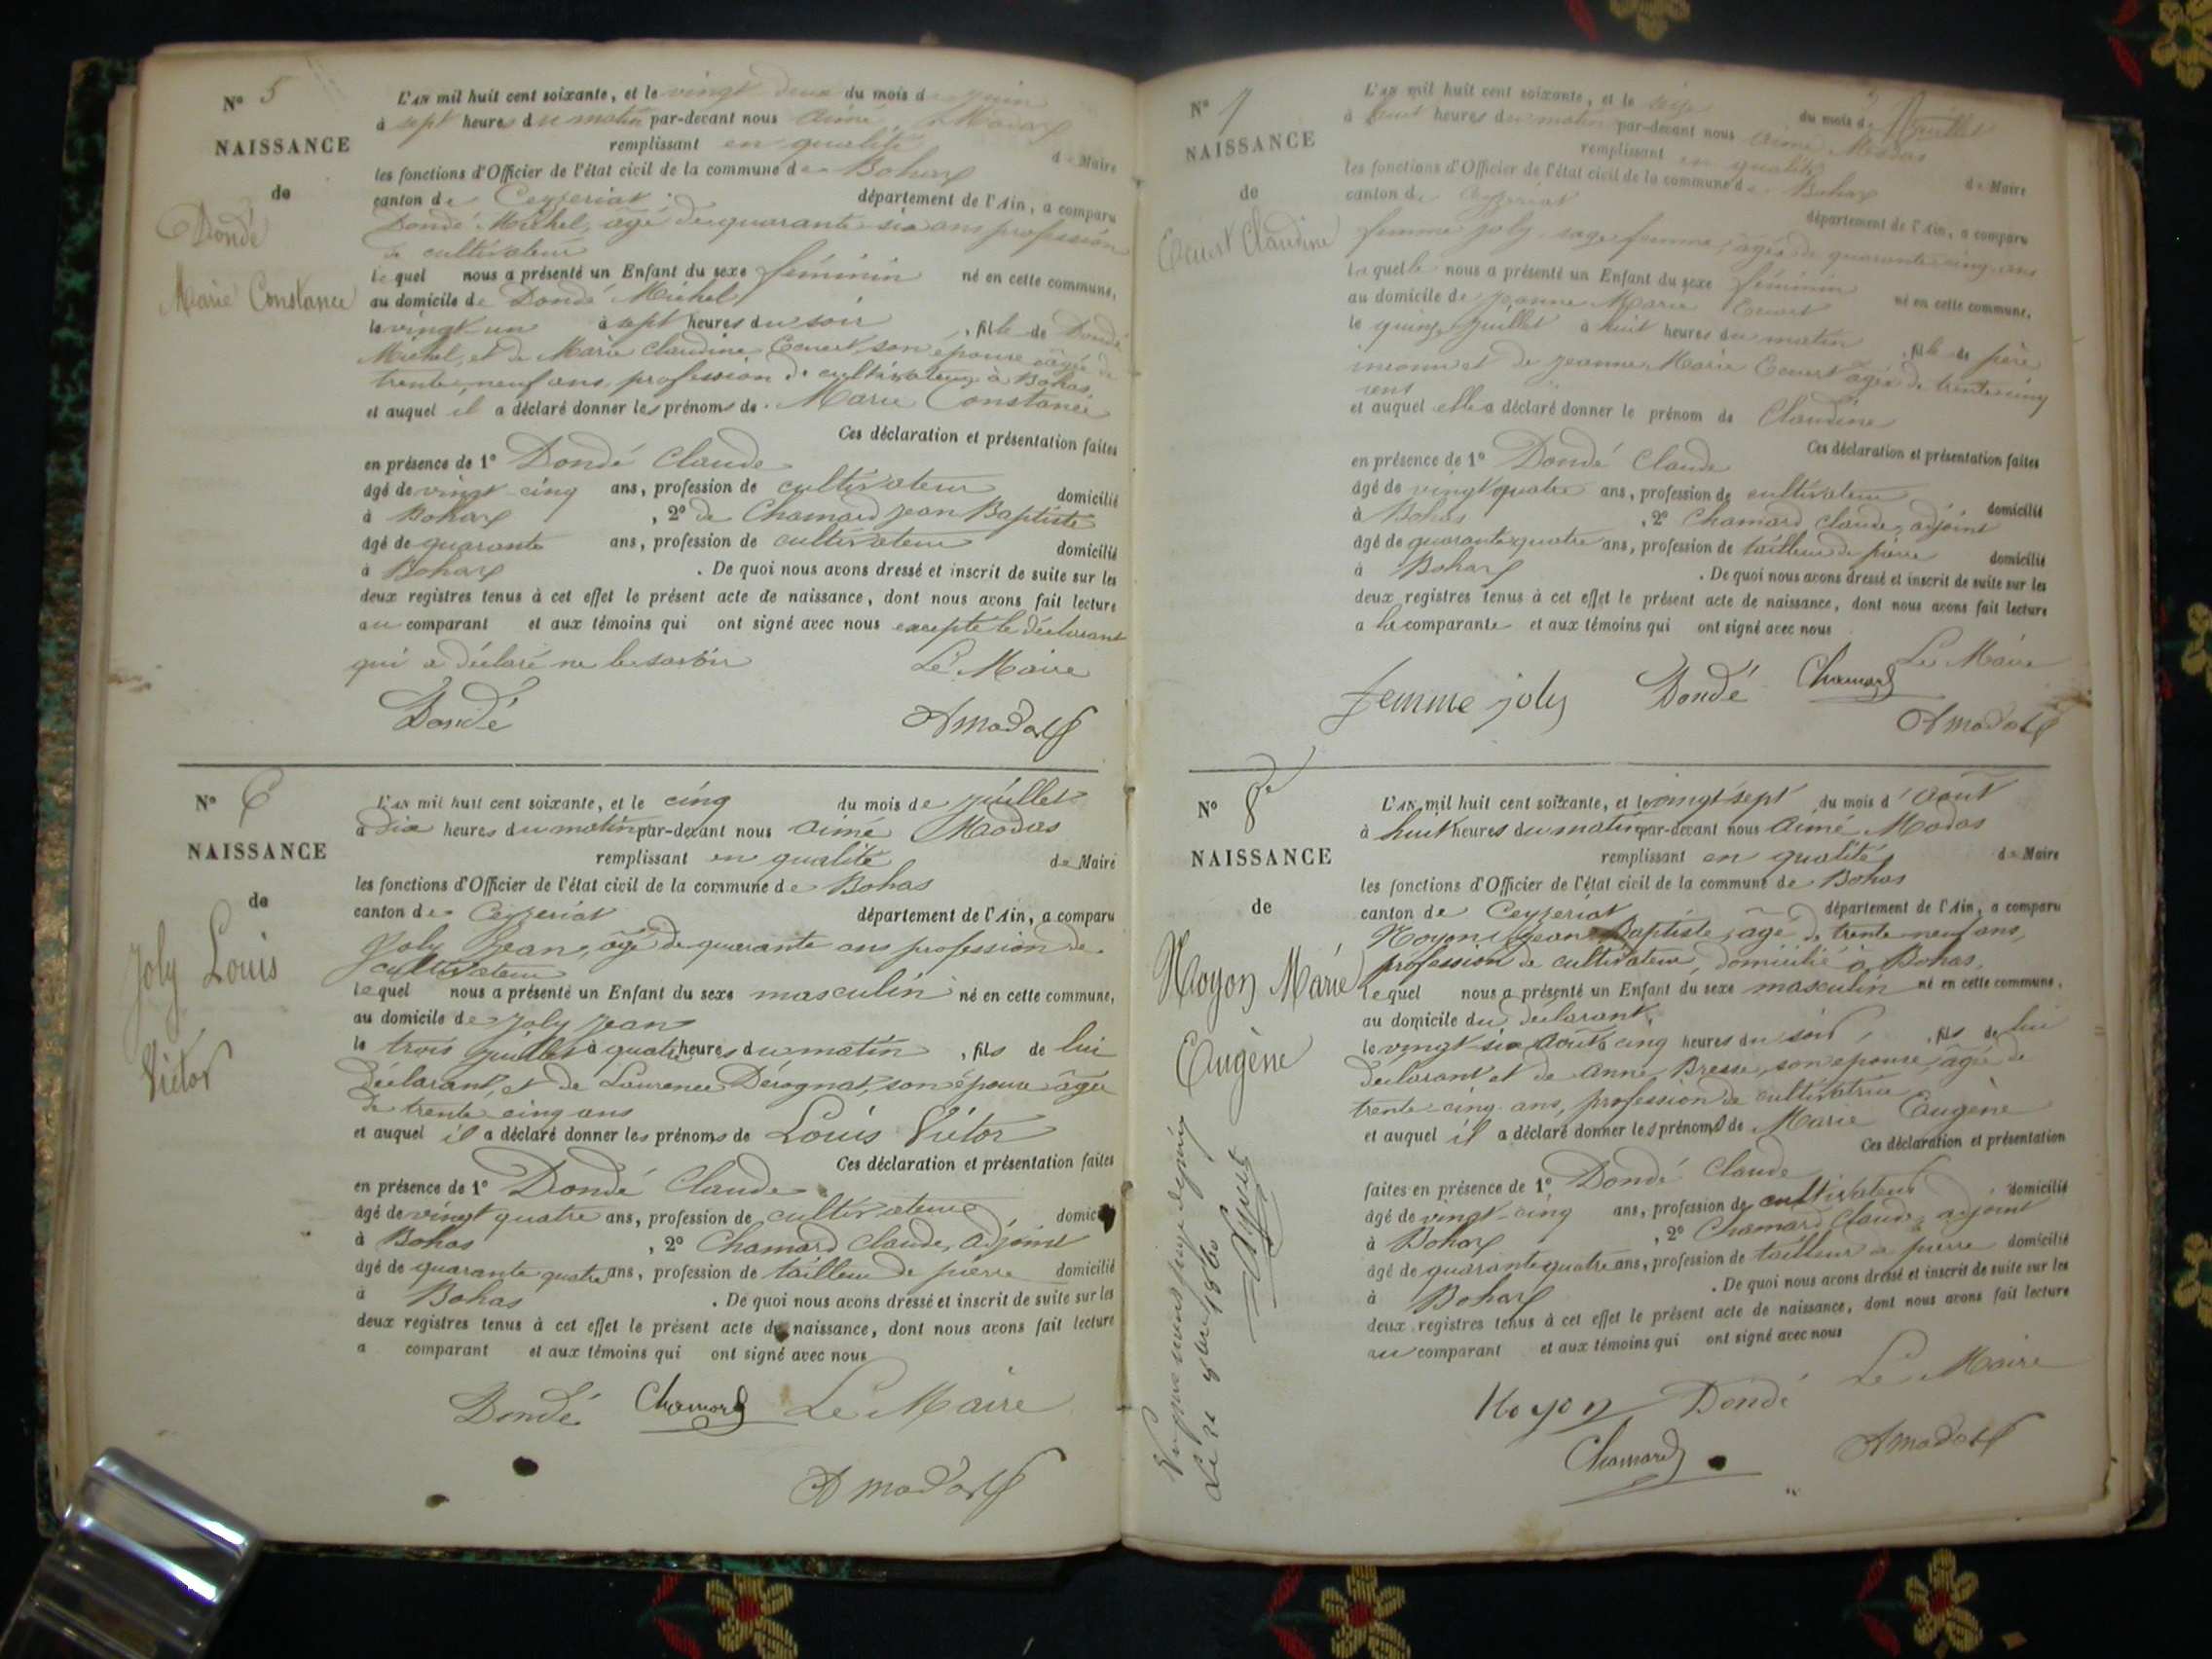 N° 5
NAISSANCE
de
Dondé
Marie Constance
L'AN mil huit cent soixante, et le vingt deux du mois de juin
à sept heures du matin par-devant nous Aimé Modas
remplissant en qualité de Maire
les fonctions d'Officier de l'état civil de la commune de Bohas
canton de Ceyzeriat département de l'Ain, a comparu
Dondé Michel, âgé de quarante six ans profession
de cultivateur
lequel nous a présenté un Enfant du sexe féminin né en cette commune,
au domicile de Dondé Michel
le vingt-un à sept heures du soir, fille de Dondé
Michel, et de Marie Claudine Ecuert, son épouse âgée de
trente neuf ans, profession de cultivateur à Bohas
et auquel il a déclaré donner les prénoms de Marie Constance
Ces déclaration et présentation faites
en présence de 1° Dondé Claude
âgé de vingt-cinq ans, profession de cultivateur domicilié
à Bohas, 2° de Chamard Jean Baptiste
âgé de quarante ans, profession de cultivateur domicilié
à Bohas. De quoi nous avons dressé et inscrit de suite sur les
deux registres tenus à cet effet le présent acte de naissance, dont nous avons fait lecture
au comparant et aux témoins qui ont signé avec nous excepté le déclarant
qui a déclaré ne le savoir Le Maire
Dondé AModas
N° 6
NAISSANCE
de
Joly Louis
Victor
L'AN mil huit cent soixante, et le cinq du mois de juillet
à dix heures du matin par-devant nous Aimé Modas
remplissant en qualité de Maire
les fonctions d'Officier de l'état civil de la commune de Bohas
canton de Ceyzeriat département de l'Ain, a comparu
Joly Jean, âgé de quarante ans profession de
cultivateur
lequel nous a présenté un Enfant du sexe masculin né en cette commune,
au domicile de Joly Jean
le trois juillet à quatre heures du matin, fils de lui
déclarant, et de Laurence Dérognat, son épouse âgée
de trente cinq ans
et auquel il a déclaré donner les prénoms de Louis Victor
Ces déclaration et présentation faites
en présence de 1° Dondé Claude
âgé de vingt quatre ans, profession de cultivateur domicilié
à Bohas, 2° Chamard Claude, adjoint
âgé de quarante quatre ans, profession de tailleur de pierre domicilié
à Bohas. De quoi nous avons dressé et inscrit de suite sur les
deux registres tenus à cet effet le présent acte de naissance, dont nous avons fait lecture
a comparant et aux témoins qui ont signé avec nous
Dondé Chamard Le Maire
AModas
N° 7
NAISSANCE
de
Ecuert Claudine
L'AN mil huit cent soixante, et le seize du mois de juillet
à huit heures du matin par-devant nous Aimé Modas
remplissant en qualité de Maire
les fonctions d'Officier de l'état civil de la commune de Bohas
canton de Ceyzeriat département de l'Ain, a comparu
femme Joly sage femme, âgée de quarante cinq ans
laquelle nous a présenté un Enfant du sexe féminin né en cette commune,
au domicile de Jeanne Marie Ecuert
le quinze juillet à huit heures du matin, fille de père
inconnu et de Jeanne Marie Ecuert âgée de trente cinq
ans
et auquel elle a déclaré donner le prénom de Claudine
Ces déclaration et présentation faites
en présence de 1° Dondé Claude
âgé de vingt quatre ans, profession de cultivateur domicilié
à Bohas, 2° Chamard Claude, adjoint
âgé de quarante quatre ans, profession de tailleur de pierre domicilié
à Bohas. De quoi nous avons dressé et inscrit de suite sur les
deux registres tenus à cet effet le présent acte de naissance, dont nous avons fait lecture
a la comparante et aux témoins qui ont signé avec nous
Le Maire
femme joly Dondé Chamard
AModas
N° 8e
NAISSANCE
de
Noyon Marie
Eugène
L'AN mil huit cent soixante, et le vingt sept du mois d'août
à huit heures du matin par-devant nous Aimé Modas
remplissant en qualité de Maire
les fonctions d'Officier de l'état civil de la commune de Bohas
canton de Ceyzeriat département de l'Ain, a comparu
Noyon Jean Baptiste, âgé de trente neuf ans,
profession de cultivateur, domicilié à Bohas,
lequel nous a présenté un Enfant du sexe masculin né en cette commune,
au domicile du déclarant,
le vingt-six août à cinq heures du soir, fils de lui
déclarant et de Anne Bresse, son épouse, âgée de
trente-cinq ans, profession de cultivatrice
et auquel il a déclaré donner les prénoms de Marie Eugène
Ces déclaration et présentation
faites en présence de 1° Dondé Claude
âgé de vingt-cinq ans, profession de cultivateur domicilié
à Bohas, 2° Chamard Claude, adjoint
âgé de quarante quatre ans, profession de tailleur de pierre domicilié
à Bohas. De quoi nous avons dressé et inscrit de suite sur les
deux registres tenus à cet effet le présent acte de naissance, dont nous avons fait lecture
au comparant et aux témoins qui ont signé avec nous
Le Maire
Noyon Dondé
Chamard AModas
Vu par nous juge